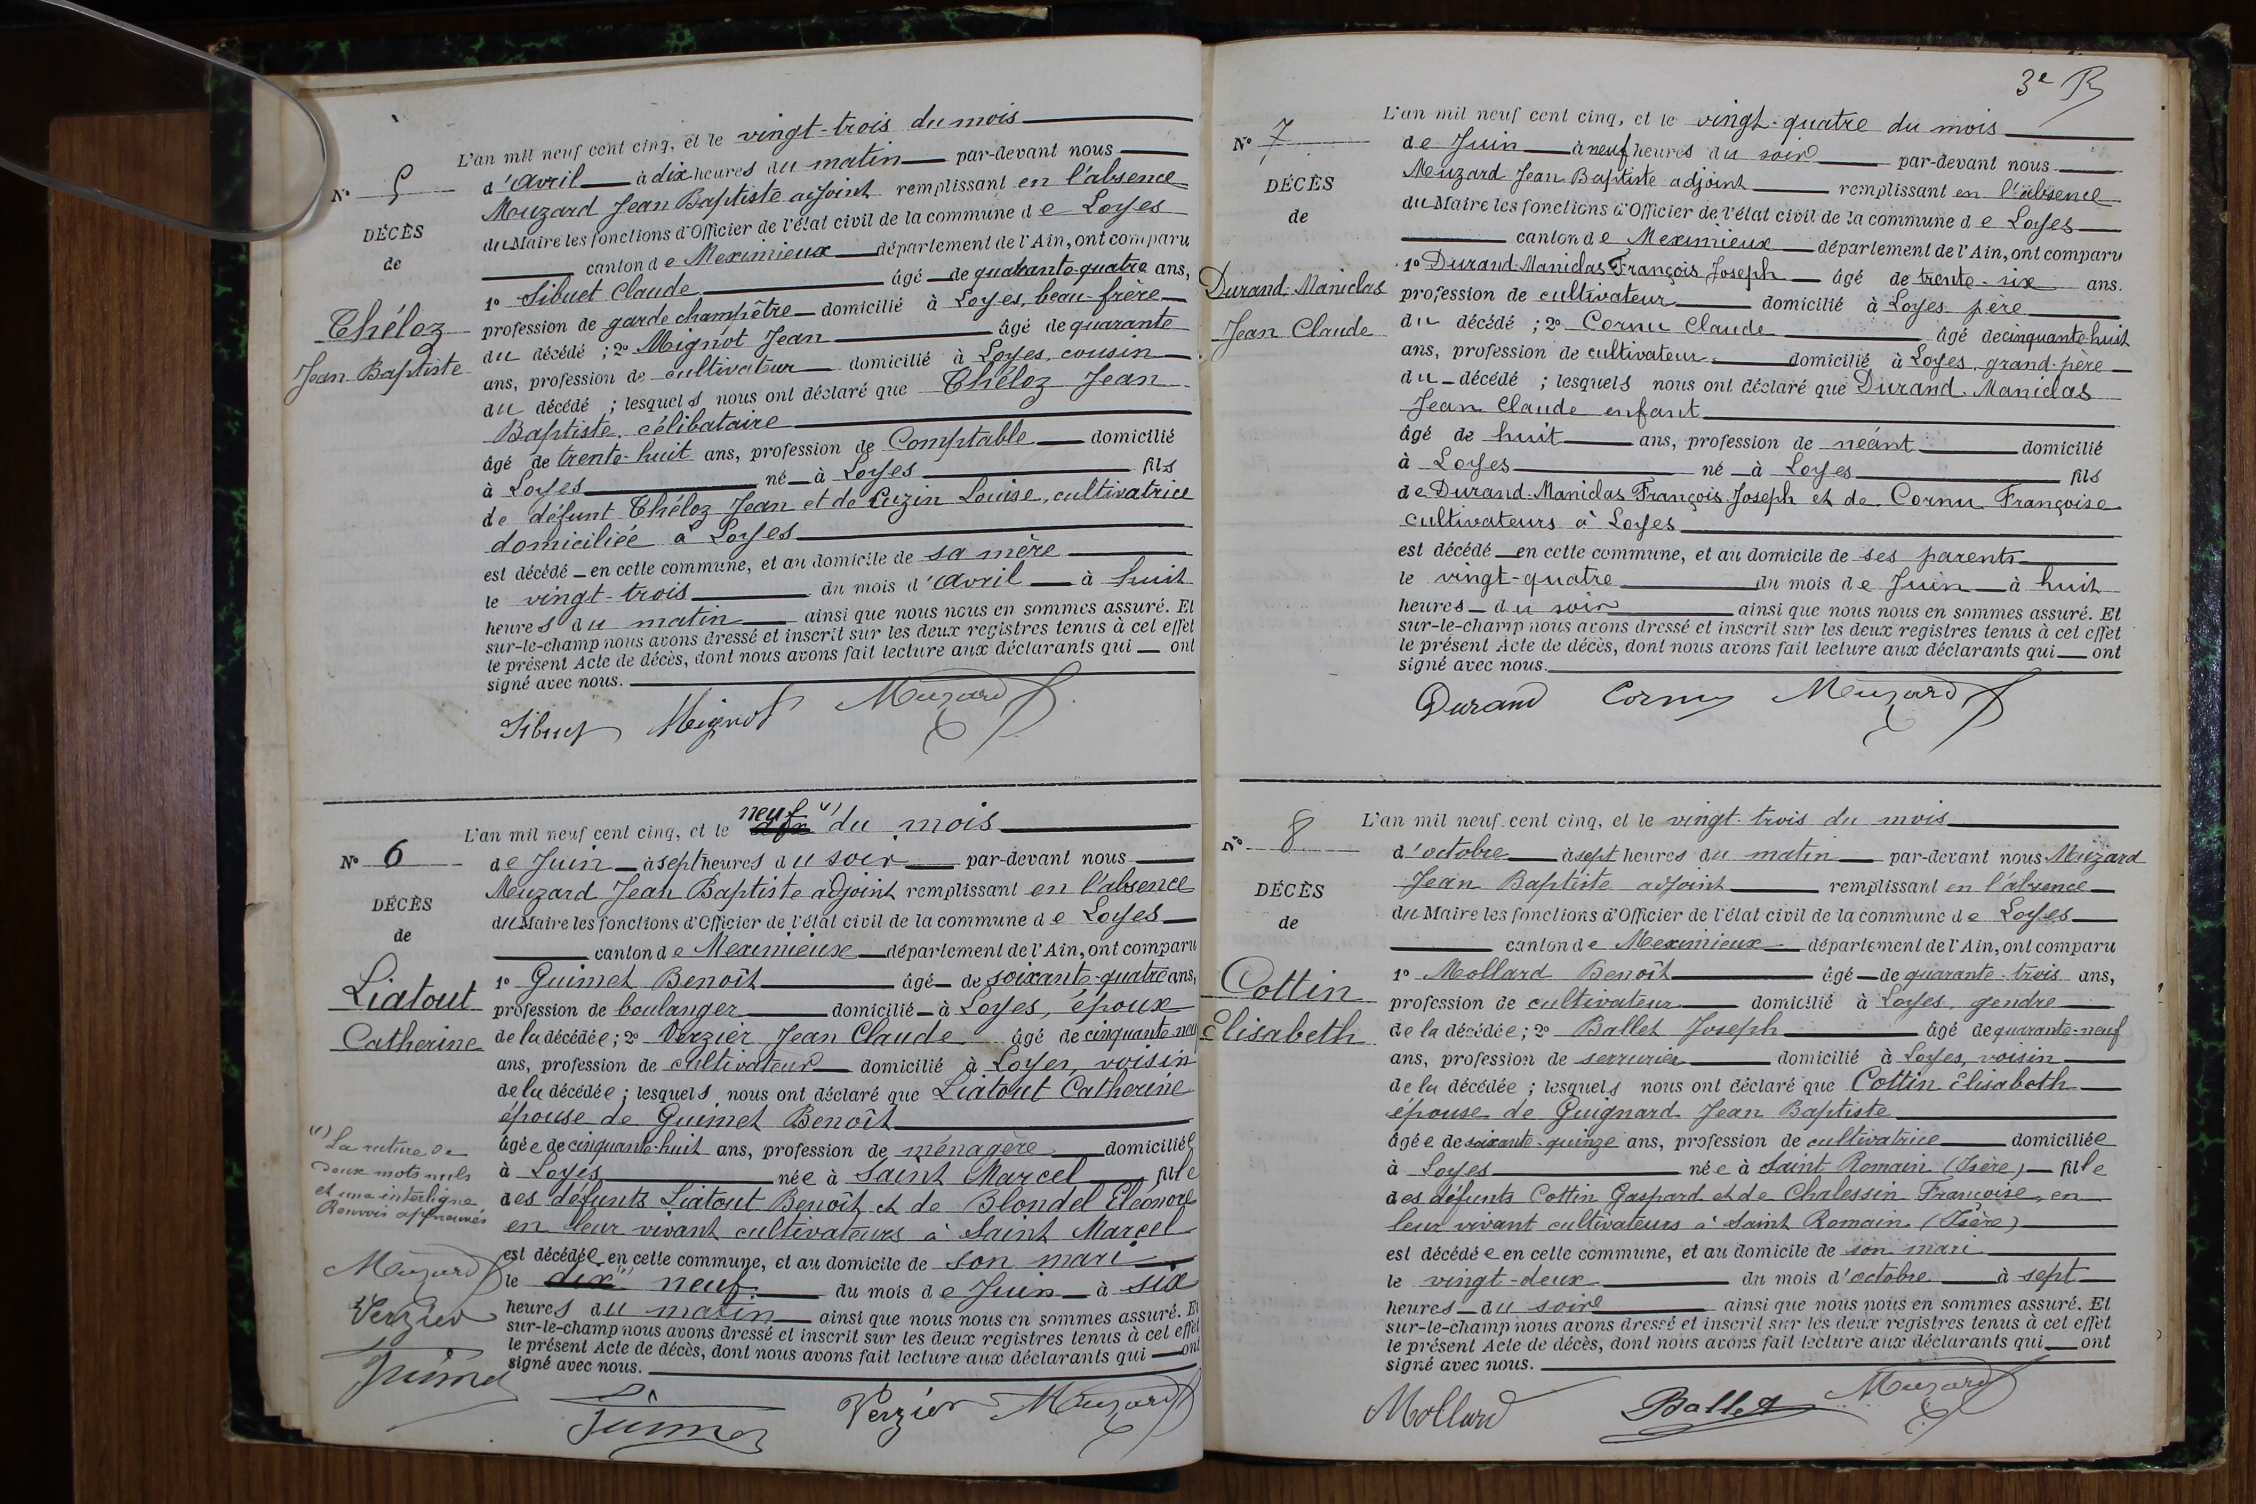 N° 5
DÉCÈS
de
Théloz
Jean Baptiste
L'an mil neuf cent cinq, et le vingt-trois du mois
d'Avril à dix heures du matin par-devant nous
Muzard Jean Baptiste adjoint remplissant en l'absence
du Maire les fonctions d'Officier de l'état civil de la commune de Loyes
canton de Meximieux département de l'Ain, ont comparu
1° Sibuet Claude âgé de quarante-quatre ans,
profession de garde champêtre domicilié à Loyes, beau-frère
du décédé ; 2° Mignot Jean âgé de quarante
ans, profession de cultivateur domicilié à Loyes, cousin
du décédé ; lesquels nous ont déclaré que Théloz Jean
Baptiste, célibataire
âgé de trente-huit ans, profession de Comptable domicilié
à Loyes né à Loyes fils
de défunt Théloz Jean et de Luzin Louise, cultivatrice
domiciliée à Loyes
est décédé en cette commune, et au domicile de sa mère
le vingt-trois du mois d'Avril à huit
heures du matin ainsi que nous nous en sommes assuré. Et
sur-le-champ nous avons dressé et inscrit sur les deux registres tenus à cet effet
le présent Acte de décès, dont nous avons fait lecture aux déclarants qui ont
signé avec nous.
Sibuet Mignot Muzard
N° 6
DÉCÈS
de
Liatout
Catherine
L'an mil neuf cent cinq, et le dix neuf (1) du mois
de Juin à sept heures du soir par-devant nous
Muzard Jean Baptiste adjoint remplissant en l'absence
du Maire les fonctions d'Officier de l'état civil de la commune de Loyes
canton de Meximieux département de l'Ain, ont comparu
1° Guimet Benoît âgé de soixante-quatre ans,
profession de boulanger domicilié à Loyes, époux
de la décédée ; 2° Verzier Jean Claude âgé de cinquante-neuf
ans, profession de cultivateur domicilié à Loyes, voisin
de la décédée ; lesquels nous ont déclaré que Liatout Catherine
épouse de Guimet Benoît
âgée de cinquante-huit ans, profession de ménagère domiciliée
à Loyes née à Saint Marcel fille
des défunts Liatout Benoît et de Blondel Eléonore
en leur vivant cultivateurs à Saint Marcel
est décédée en cette commune, et au domicile de son mari
le dix (1) neuf du mois de Juin à six
heures du matin ainsi que nous nous en sommes assuré. Et
sur-le-champ nous avons dressé et inscrit sur les deux registres tenus à cet effet
le présent Acte de décès, dont nous avons fait lecture aux déclarants qui ont
signé avec nous.
(1) La rature de
deux mots nuls
et une interligne
Renvoi approuvés
Muzard
Verzier
Guimet
Guimet Verzier Muzard
3e
N° 7
DÉCÈS
de
Durand-Maniclas
Jean Claude
L'an mil neuf cent cinq, et le vingt-quatre du mois
de Juin à neuf heures du soir par-devant nous
Muzard Jean Baptiste adjoint remplissant en l'absence
du Maire les fonctions d'Officier de l'état civil de la commune de Loyes
canton de Meximieux département de l'Ain, ont comparu
1° Durand-Maniclas François Joseph âgé de trente-six ans.
profession de cultivateur domicilié à Loyes père
du décédé ; 2° Cornu Claude âgé de cinquante-huit
ans, profession de cultivateur domicilié à Loyes, grand-père
du décédé ; lesquels nous ont déclaré que Durand-Maniclas
Jean Claude enfant
âgé de huit ans, profession de néant domicilié
à Loyes né à Loyes fils
de Durand-Maniclas François Joseph et de Cornu Françoise
cultivateurs à Loyes
est décédé en cette commune, et au domicile de ses parents
le vingt-quatre du mois de Juin à huit
heures du soir ainsi que nous nous en sommes assuré. Et
sur-le-champ nous avons dressé et inscrit sur les deux registres tenus à cet effet
le présent Acte de décès, dont nous avons fait lecture aux déclarants qui ont
signé avec nous.
Durand Cornu Muzard
N° 8
DÉCÈS
de
Cottin
Elisabeth
L'an mil neuf cent cinq, et le vingt-trois du mois
d'octobre à sept heures du matin par-devant nous Muzard
Jean Baptiste adjoint remplissant en l'absence
du Maire les fonctions d'Officier de l'état civil de la commune de Loyes
canton de Meximieux département de l'Ain, ont comparu
1° Mollard Benoît âgé de quarante-trois ans,
profession de cultivateur domicilié à Loyes, gendre
de la décédée ; 2° Ballet Joseph âgé de quarante-neuf
ans, profession de serrurier domicilié à Loyes, voisin
de la décédée ; lesquels nous ont déclaré que Cottin Élisabeth
épouse de Guignard Jean Baptiste
âgée de soixante-quinze ans, profession de cultivatrice domiciliée
à Loyes née à Saint Romain (Isère) fille
des défunts Cottin Gaspard et de Chalessin Françoise, en
leur vivant cultivateurs à Saint Romain (Isère)
est décédée en cette commune, et au domicile de son mari
le vingt-deux du mois d'octobre à sept
heures du soir ainsi que nous nous en sommes assuré. Et
sur-le-champ nous avons dressé et inscrit sur les deux registres tenus à cet effet
le présent Acte de décès, dont nous avons fait lecture aux déclarants qui ont
signé avec nous.
Mollard Ballet Muzard